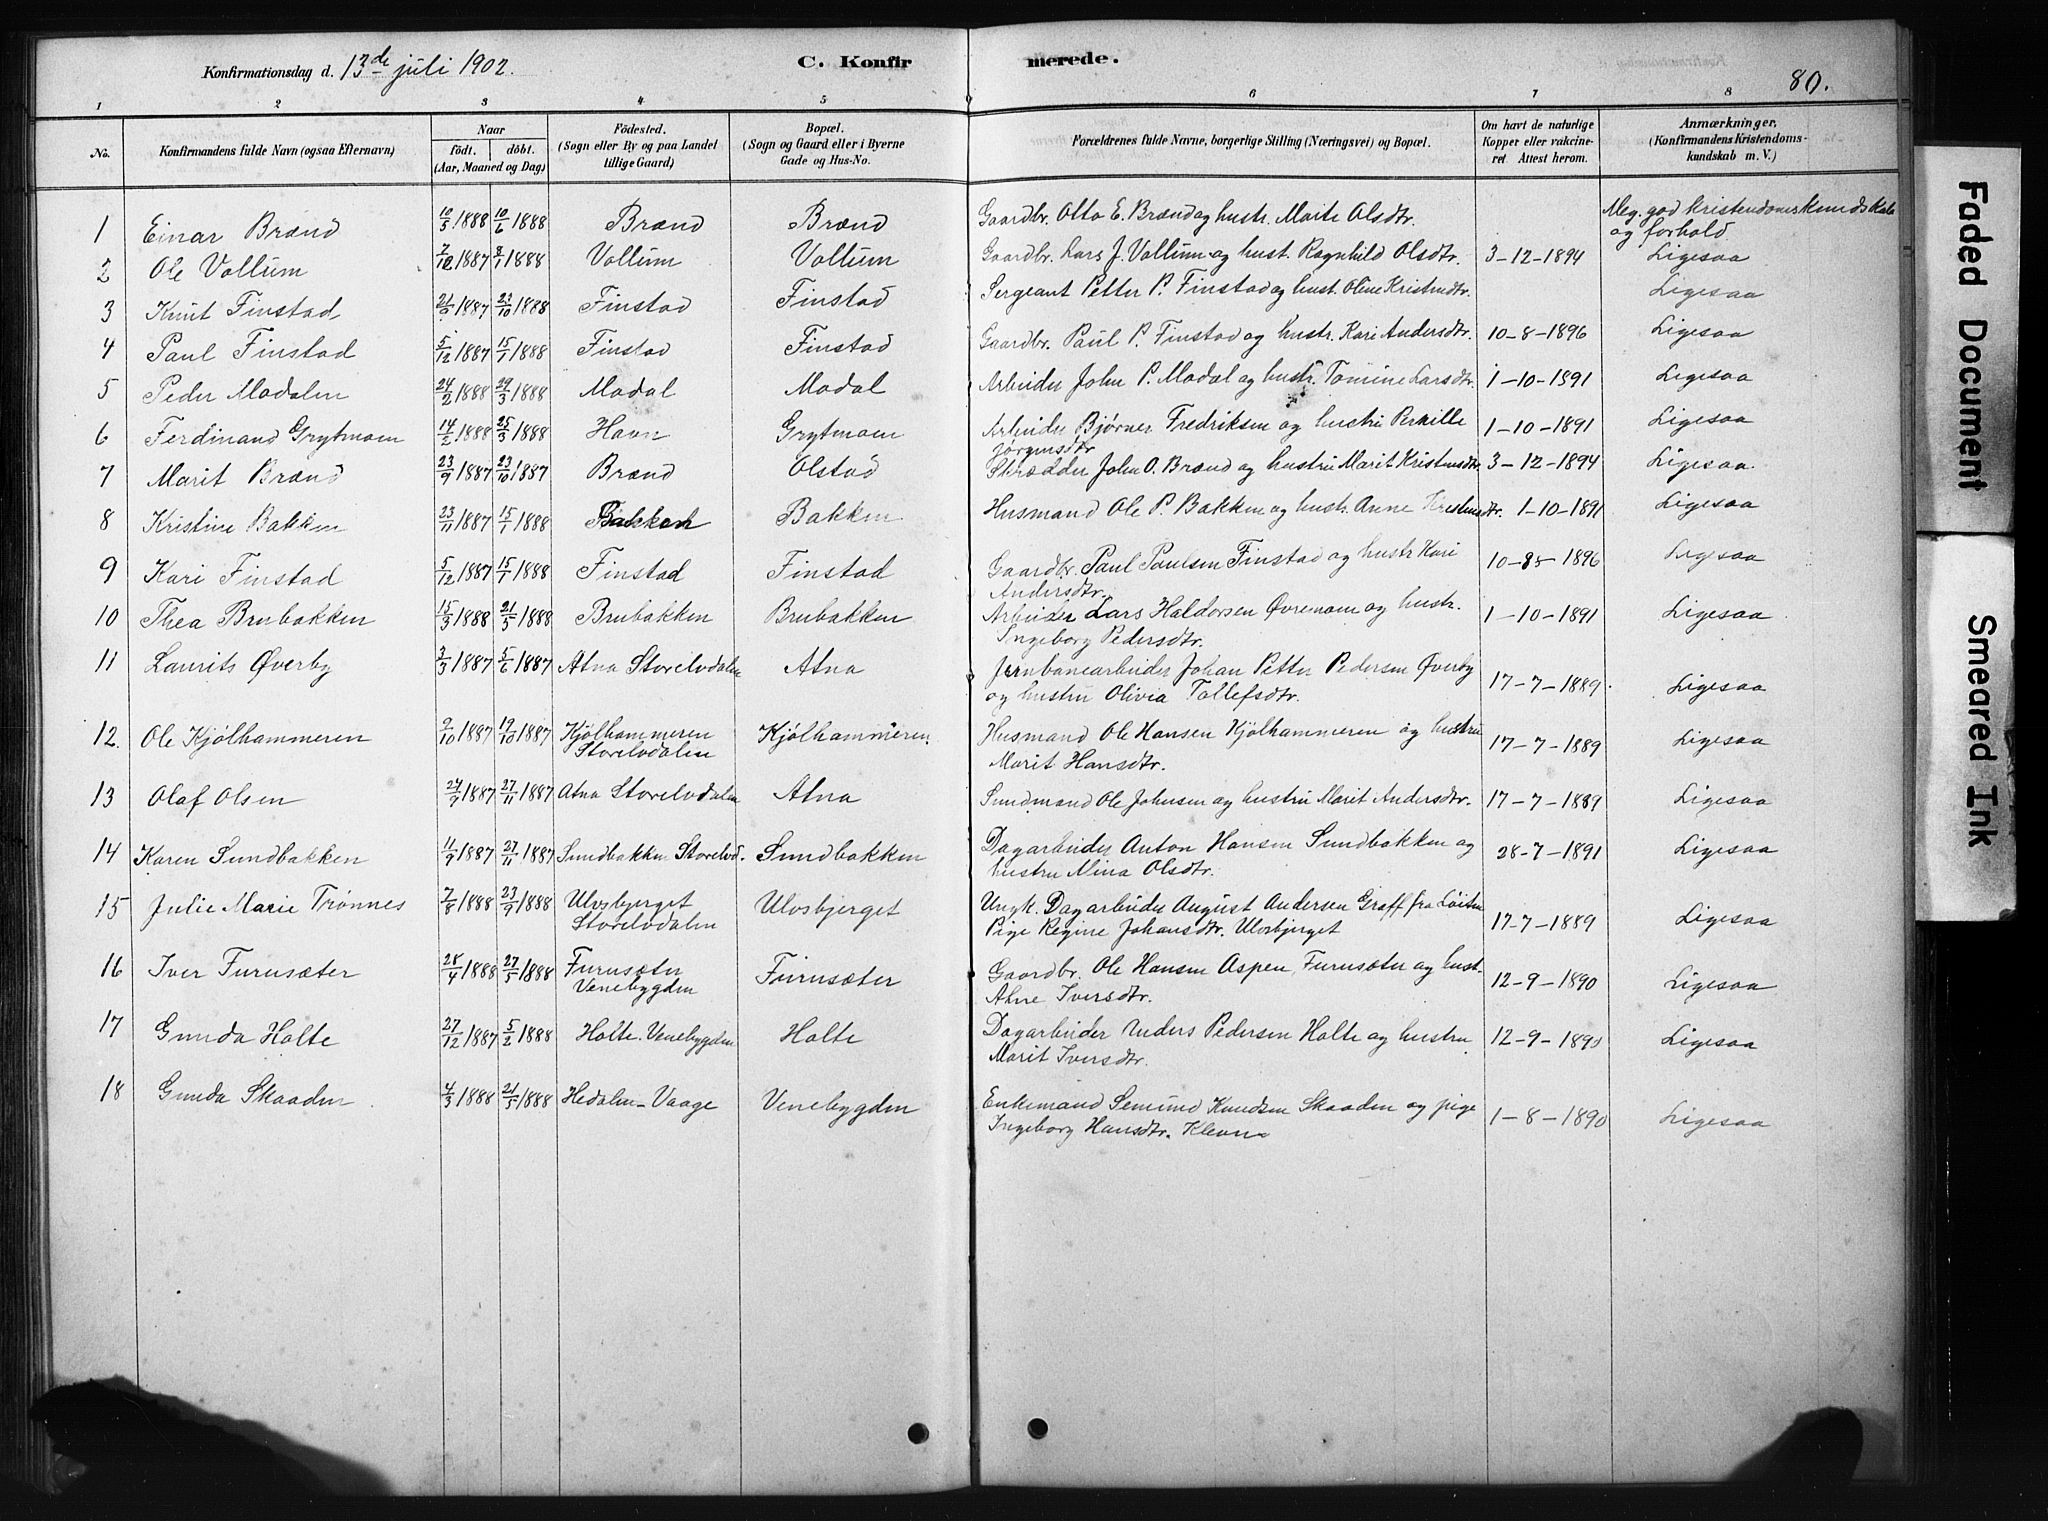 Konfirmationsdag d. 13de juli 1902.
C. Konfirmerede.
80.
1 2 3 4 5 6 7 8
No. Konfirmandens fulde Navn (ogsaa Efternavn) Naar Födt. döbt. (Aar, Maaned og Dag) Födested. (Sogn eller By og paa Landet tillige Gaard) Bopæl. (Sogn og Gaard eller i Byerne Gade og Hus-No. Forældrenes fulde Navne, borgerlige Stilling (Næringsvei) og Bopæl. Om havt de naturlige Kopper eller vakcineret Attest herom. Anmærkninger. (Konfirmandens Kristendomskundskab m. V.)
1 Einar Brænd 10/5 1888 10/6 1888 Brænd Brænd Gaardbr. Otto E. Brænd og hustr. Marte Olsdtr. Meg. god kristendomskundskab og forhold
2 Ole Vollum 7/12 1887 8/1 1888 Vollum Vollum Gaardbr. Lars J. Vollum og hust. Ragnhild Olsdtr. 3-12-1894 Ligesaa
3 Knut Finstad 1887 23/10 1888 Finstad Finstad Sergeant Petter P. Finstad og hust. Oline Kristensdtr. Ligesaa
4 Paul Finstad 5/12 1887 15/1 1888 Finstad Finstad Gaardbr. Paul P. Finstad og hustr. Kari Andersdtr. 10-8-1896 Ligesaa
5 Peder Modalen 24/2 1888 29/3 1888 Modal Modal Arbeider John P. Modal og hustr. Tomine Larsdtr. 1-10-1891 Ligesaa
6 Ferdinand Grytmoen 14/2 1888 25/3 1888 Havn Grytmoen Arbeider Bjørner Fredriksen og hustru Pernille Jørgensdtr 1-10-1891 Ligesaa
7 Marit Brænd 23/9 1887 23/10 1887 Brænd Olstad Skrædder John O. Brænd og hustru Marit Kristensdtr. 3-12-1894 Ligesaa.
8 Kristine Bakken 23/11 1887 15/1 1888 Bakken Bakken Husmand Ole P. Bakken og hustr. Anne Kristensdtr. 1-10-1891 Ligesaa
9 Kari Finstad 5/12 1887 15/1 1888 Finstad Finstad Gaardbr. Paul Paulsen Finstad og hustr Kari Andersdtr. 1896 Ligesaa
10 Thea Brubakken 15/3 1888 21/5 1888 Brubakken Brubakken Arbeider Lars Haldorsen Øvremoen og hustr. Ingeborg Pedersdtr. 1-10-1891 Ligesaa
11 Laurits Øverby 3/3 1887 5/6 1887 Atna Storelvdalen Atna Jernbanearbeider Johan Petter Pedersen Øverby og hustru Olivia Tollefsdtr. 17-7-1889. Ligesaa
12. Ole Kjølhammeren 9/10 1887 19/10 1887 Kjølhammeren Storelvdalen Kjølhammeren. Husmand Ole Hansen Kjølhammeren og hustru Marit Hansdtr. 17-7-1889 Ligesaa
13 Olaf Olsen 24/7 1887 27/11 1887 Atna Storelvdalen Atna Sundmand Ole Johnsen og hustru Marit Andersdtr. 17-7-1889 Ligesaa
14 Karen Sundbakken 11/9 1887 27/11 1887 Sundbakken Storelvd. Sundbakken Dagarbeider Anton Hansen Sundbakken og hustru Nina Olsdtr. 28-7-1891 Ligesaa
15 Julie Marie Trønnes 7/8 1888 23/9 1888 Ulvsbjerget Storelvdalen Ulvsbjerget Ungk. Dagarbeider August Andersen Graff fra Løiten Pige Regine Johansdtr. Ulvsbjerget 17-7-1889 Ligesaa
16 Iver Furusæter 28/4 1888 27/5 1888 Furusæter Venebygden Furusæter Gaardbr. Ole Hansen Aspen, Furusæter og hust. Ahne Iversdtr. 12-9-1890 Ligesaa
17 Gunda Holte 27/12 1887 5/2 1888 Holte. Venebygden Holte Dagarbeider Anders Pedersen Holte og hustru Marit Iversdtr. 12-9-1890 Ligesaa
18 Gunda Skaaden 4/3 1888 21/5 1888 Hedalen-Vaage Venebygden Enkemand Semund Knudsen Skaaden og pige Ingeborg Hansdtr. Klevn 1-8-1890 Ligesaa
Faded Document
Smeared Ink